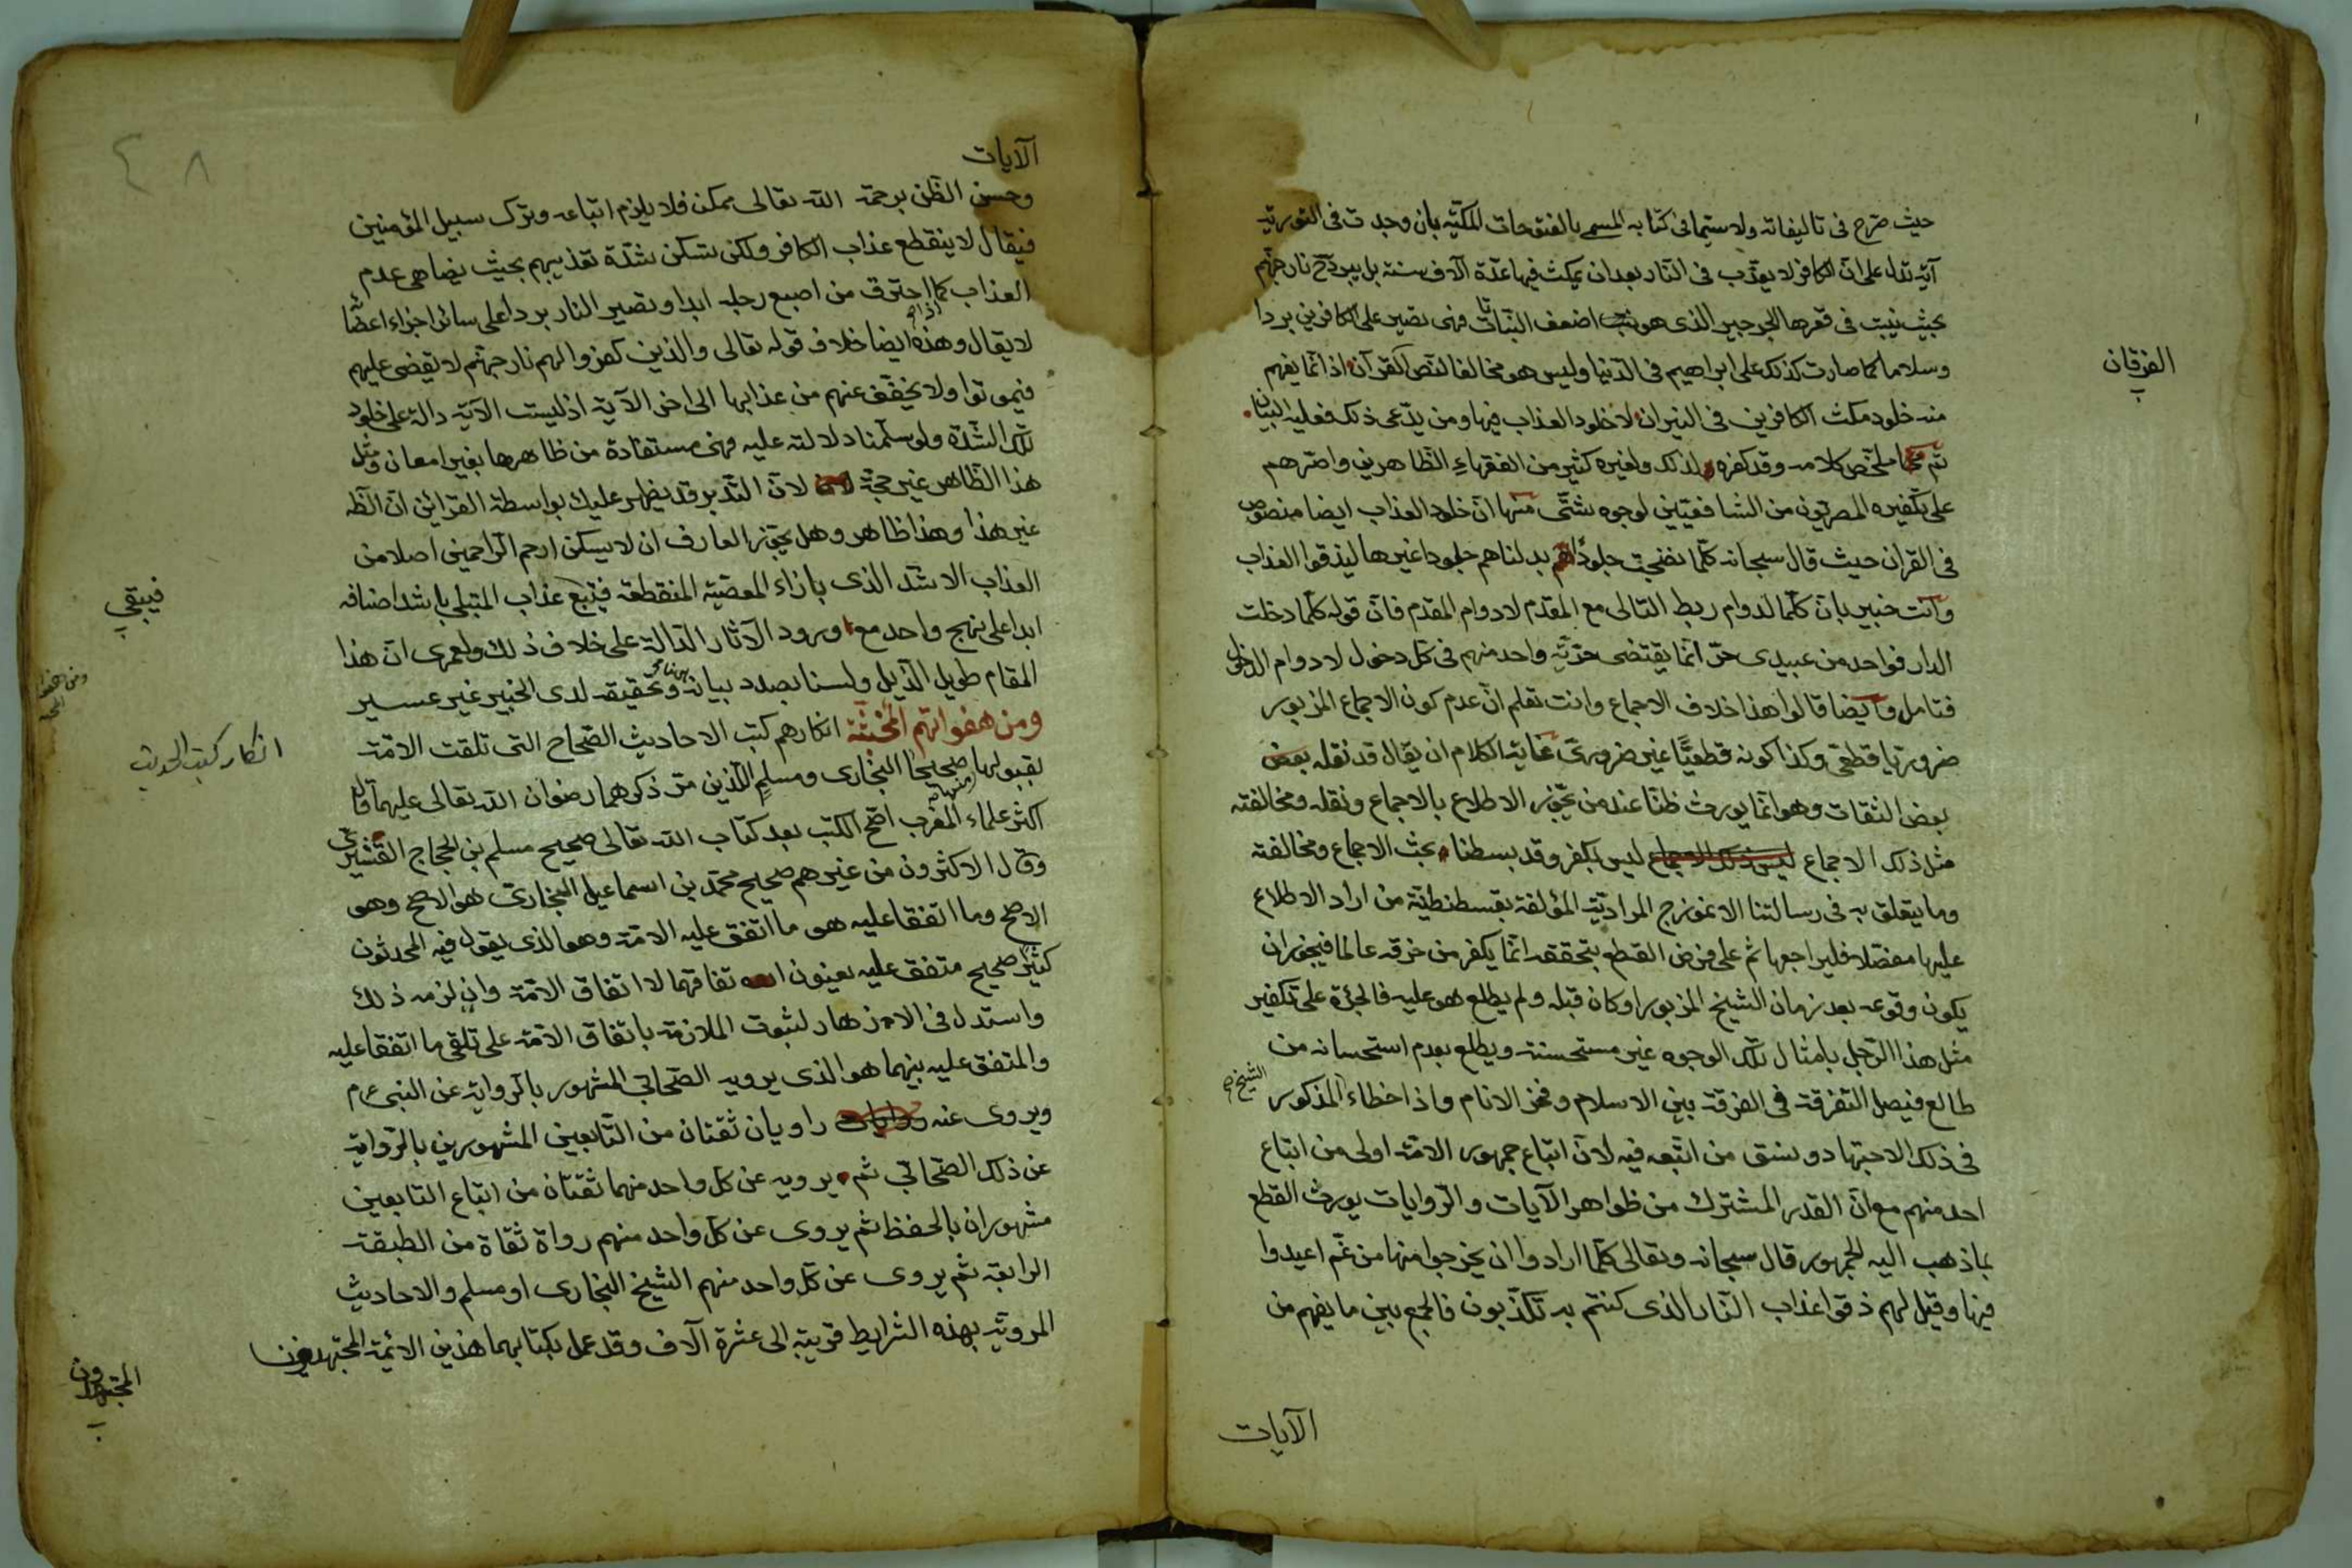 حيث صرح في تاليفاته ولا سيما في كتابه المسمى بالفتوحات المكيه بان وجدت في التورية
آية تدل على ان الكافر لا يعذب في النار بعد ان يمكث فيها عدة آلاف سنة بل يبرد ح نار جهنم
بحيث ينبت في قعرها الجرجير الذي هو اضعف النباتات فهى تصير على الكافرين بردا
وسلاما كما صارت كذلك على ابراهيم في الدنيا وليس هو مخالفا لنص القرآن اذ انما يفهم
الفرقان
منه خلود مكث الكافرين في النيران لا خلود العذاب فيها ومن يدعى ذلك فعليه البيان
تم ملخص كلامه وقد كفره لذلك ولغيره كثير من الفقهاء الظاهرين واصرهم
على تكفيره المصريون من الشافعيين لوجوه شتى منها ان خلود العذاب ايضا منصوص
في القران حيث قال سبحانه كلما نضجت جلودهم بدلناهم جلودا غيرها ليذقوا العذاب
وانت خبير بان كلما لدوام ربط التالى مع المقدم لا دوام المقدم فان قوله كلما دخلت
الدار فواحد من عبيدى حر انما يقتضى حرية واحد منهم في كل دخول لا دوام الدخول
فتامل وايضا قالوا هذا خلاف الاجماع وانت تعلم ان عدم كون الاجماع المزبور
ضروريا قطعى وكذا كونه قطعيا غير ضرورى غاية الكلام ان يقال قد نقله بعض
بعض الثقات وهو انما يورث ظنا عند من يجوز الاطلاع بالاجماع ونقله ومخالفته
مثل ذلك الاجماع ليس بكفر وقد بسطنا بحث الاجماع ومخالفته
وما يتعلق به في رسالتنا الانموزج المرادية المؤلفة بقسطنطنية من اراد الاطلاع
عليها مفصلا فليراجعها ثم على فرض القطع بتحققه انما يكفر من خرقه عالما فيجوز ان
يكون وقوعه بعد زمان الشيخ المزبور او كان قبله ولم يطلع هو عليه فالجرئة على تكفير
مثل هذا الرجل بامثال تلك الوجوه غير مستحسنة ويطلع بعدم استحسانه من
طالع فيصل التفرقة في الفرقة بين الاسلام وفخر الانام واذا خطاء الشيخ المذكور
في ذلك الاجتهاد ونسق من اتبعه فيه لان اتباع جمهور الامة اولى من اتباع
احد منهم مع ان القدر المشترك من ظواهر الآيات والروايات يورث القطع
بما ذهب اليه الجمهور قال سبحانه وتعالى كلما ارادوا ان يخرجوا منها من غم اعيدوا
فيها وقيل لهم ذقوا عذاب النار الذى كنتم به تكذبون فالجمع بين ما يفهم من
الآيات
٤ ٨
الآيات
وحسن الظن برحمة الله تعالى ممكن فلا يلزم اتباعه وترك سبيل المؤمنين
فيقال لا ينقطع عذاب الكافر ولكن تسكن شدة تعذيبهم بحيث يضاهى عدم
العذاب كما اذا احترق من اصبع رجله ابدا وتصير النار بردا على سائر اجزاء اعضا
لا يقال وهذه ايضا خلاف قوله تعالى والذين كفروا لهم نار جهنم لا يقضى عليهم
فيموتوا ولا يخفف عنهم من عذابها الى اخر الآية اذ ليست الآية دالة على خلود
تلك الشدة ولو سلمنا دلالته عليه فهى مستفادة من ظاهرها بغير امعان ومثل
هذا الظاهر غير حجة لان التدبر قد يظهر عليك بواسطة القرائن ان الظه
غير هذا وهذا ظاهر وهل يجوز العارف ان لا يسكن ارحم الراحمين اصلا من
العذاب الاشد الذى بازاء المعصية المنقطعة عذاب المبتلى باشد اضافه
فيبقى
ابدا على نهج واحد مع ورود الآثار الدالة على خلاف ذلك ولعمرى ان هذا
المقام طويل الذيل ولسنا بصدد بيانه وتحقيقه لدى الخبير غير عسير
ومن هفواتهم انكارهم كتب الاحاديث الصحاح التى تلقت الامة
انكار كتب الحديث
بقبولها منها صحيحا البخارى ومسلم اللذين مر ذكرهما رضوان الله تعالى عليهما قال
اكثر علماء المغرب اصح الكتب بعد كتاب الله تعالى صحيح مسلم بن الحجاج القشيرى
وقال الاكثرون من غيرهم صحيح محمد بن اسماعيل البخارى هو الاصح وهو
الاصح وما اتفقا عليه هو ما اتفق عليه الامة وهو الذى يقول فيه المحدثون
كثيرا صحيح متفق عليه يعنون اتفاقهما لا اتفاق الامة وان لزمه ذلك
واستدل في الازهار لثبوت الملازمة باتفاق الامة على تلقى ما اتفقا عليه
والمتفق عليه بينهما هو الذى يرويه الصحابى المشهور بالرواية عن النبى عم
ويروى عنه راويان ثقتان من التابعين المشهورين بالرواية
عن ذلك الصحابى ثم يرويه عن كل واحد منهما ثقتان من اتباع التابعين
مشهوران بالحفظ ثم يروى عن كل واحد منهم رواة ثقاة من الطبقة
الرابعة ثم يروى عن كل واحد منهم الشيخ البخارى او مسلم والاحاديث
المروية بهذه الشرايط قريبة الى عشرة آلاف وقد عمل بكتابهما هذين الائمة
المجتهدون